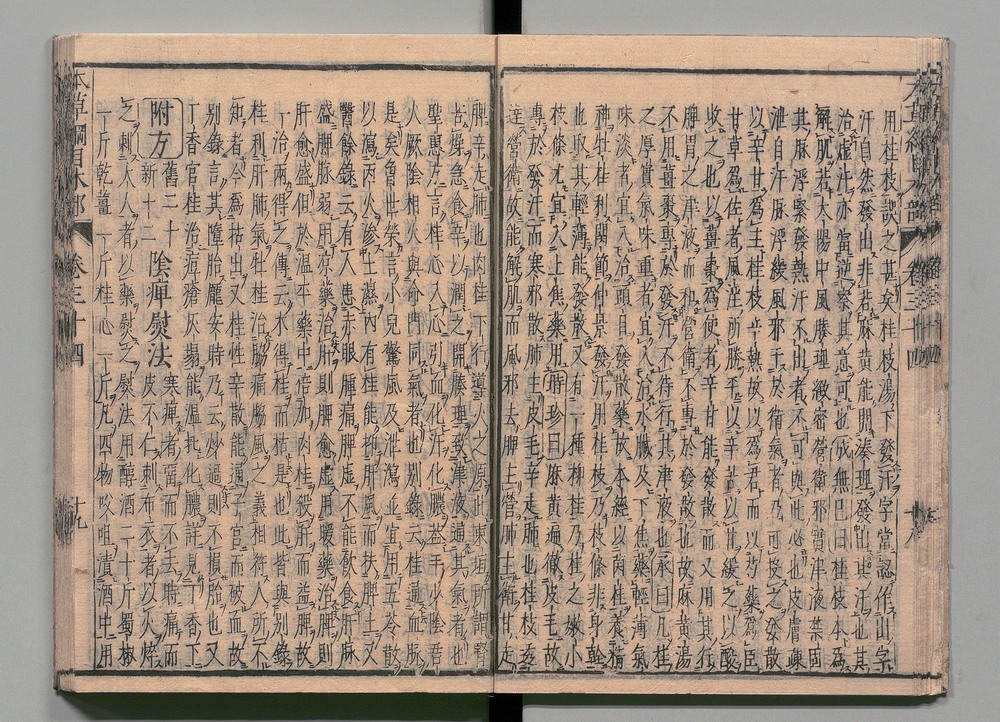 用桂枝誤之甚矣桂枝湯下發汗字當認作出字
汗自然發出非若麻黃能開湊理發出其汗也其
治虛汗亦當逆察其意可也成無已曰桂枝本爲
解肌若太陽中風腠理緻密營衛邪實津液禁固
其脉浮緊發熱汗不出者不可與此必也皮膚疎
泄自汗脉浮緩風邪干於衛氣者乃可投之發散
以辛甘爲主桂枝辛熱故以爲君而以芍藥爲臣
甘草爲佐者風淫所勝平以辛苦以甘緩之以酸
收之也以薑棗爲使者辛甘能發散而又用其行
脾胃之津液而和營衛不專於發散也故麻黃湯
不用薑棗專於發汗不待行其津液也承曰凡桂
之厚實氣味重者宜入治水臟及下焦藥輕薄氣
味淡者宜入治頭目發散藥故本經以菌桂養精
神牡桂利關節仲景發汗用桂枝乃枝條非身幹
也取其輕薄能發散又有一種柳桂乃桂之嫩小
枝條尤宜入上焦藥用時珍曰麻黃遍徹皮毛故
專於發汗而寒邪散肺主皮毛辛走肺也桂枝透
達營衛故能解肌而風邪去脾主營肺主衛甘走
脾辛走肺也肉桂下行導火之原此東垣所謂腎
苦燥急食辛以潤之開腠理致津液通其氣者也
聖惠方言桂心入心引血化汗化膿蓋手少陰君
火厥陰相火與命門同氣者也別錄云桂通血脉
是矣曾世榮言小兒驚風及泄瀉並宜用五苓散
以瀉丙火滲土濕內有桂能抑肝風而扶脾土又
醫餘錄云有人患赤眼腫痛脾虛不能飲食肝脉
盛脾脉弱用凉藥治肝則脾愈虛用暖藥治脾則
肝愈盛但於溫平藥中倍加肉桂殺肝而益脾故
一治兩得之傳云木得桂而枯是也此皆與別錄
桂利肝肺氣牡桂治脇痛脇風之義相符人所不
知者今爲拈出又桂性辛散能通子宮而破血故
別錄言其墮胎龐安時乃云炒過則不損胎也又
丁香官桂治痘瘡灰塌能溫托化膿詳見丁香下
附方舊二十新十二陰痺熨法寒痺者留而不去時痛而皮不仁刺布衣者以火焠
之刺大人者以藥熨之熨法用醇酒二十斤蜀椒
一斤乾薑一斤桂心一斤凡四物㕮咀漬酒中用
本草綱目木部 卷三十四 十九